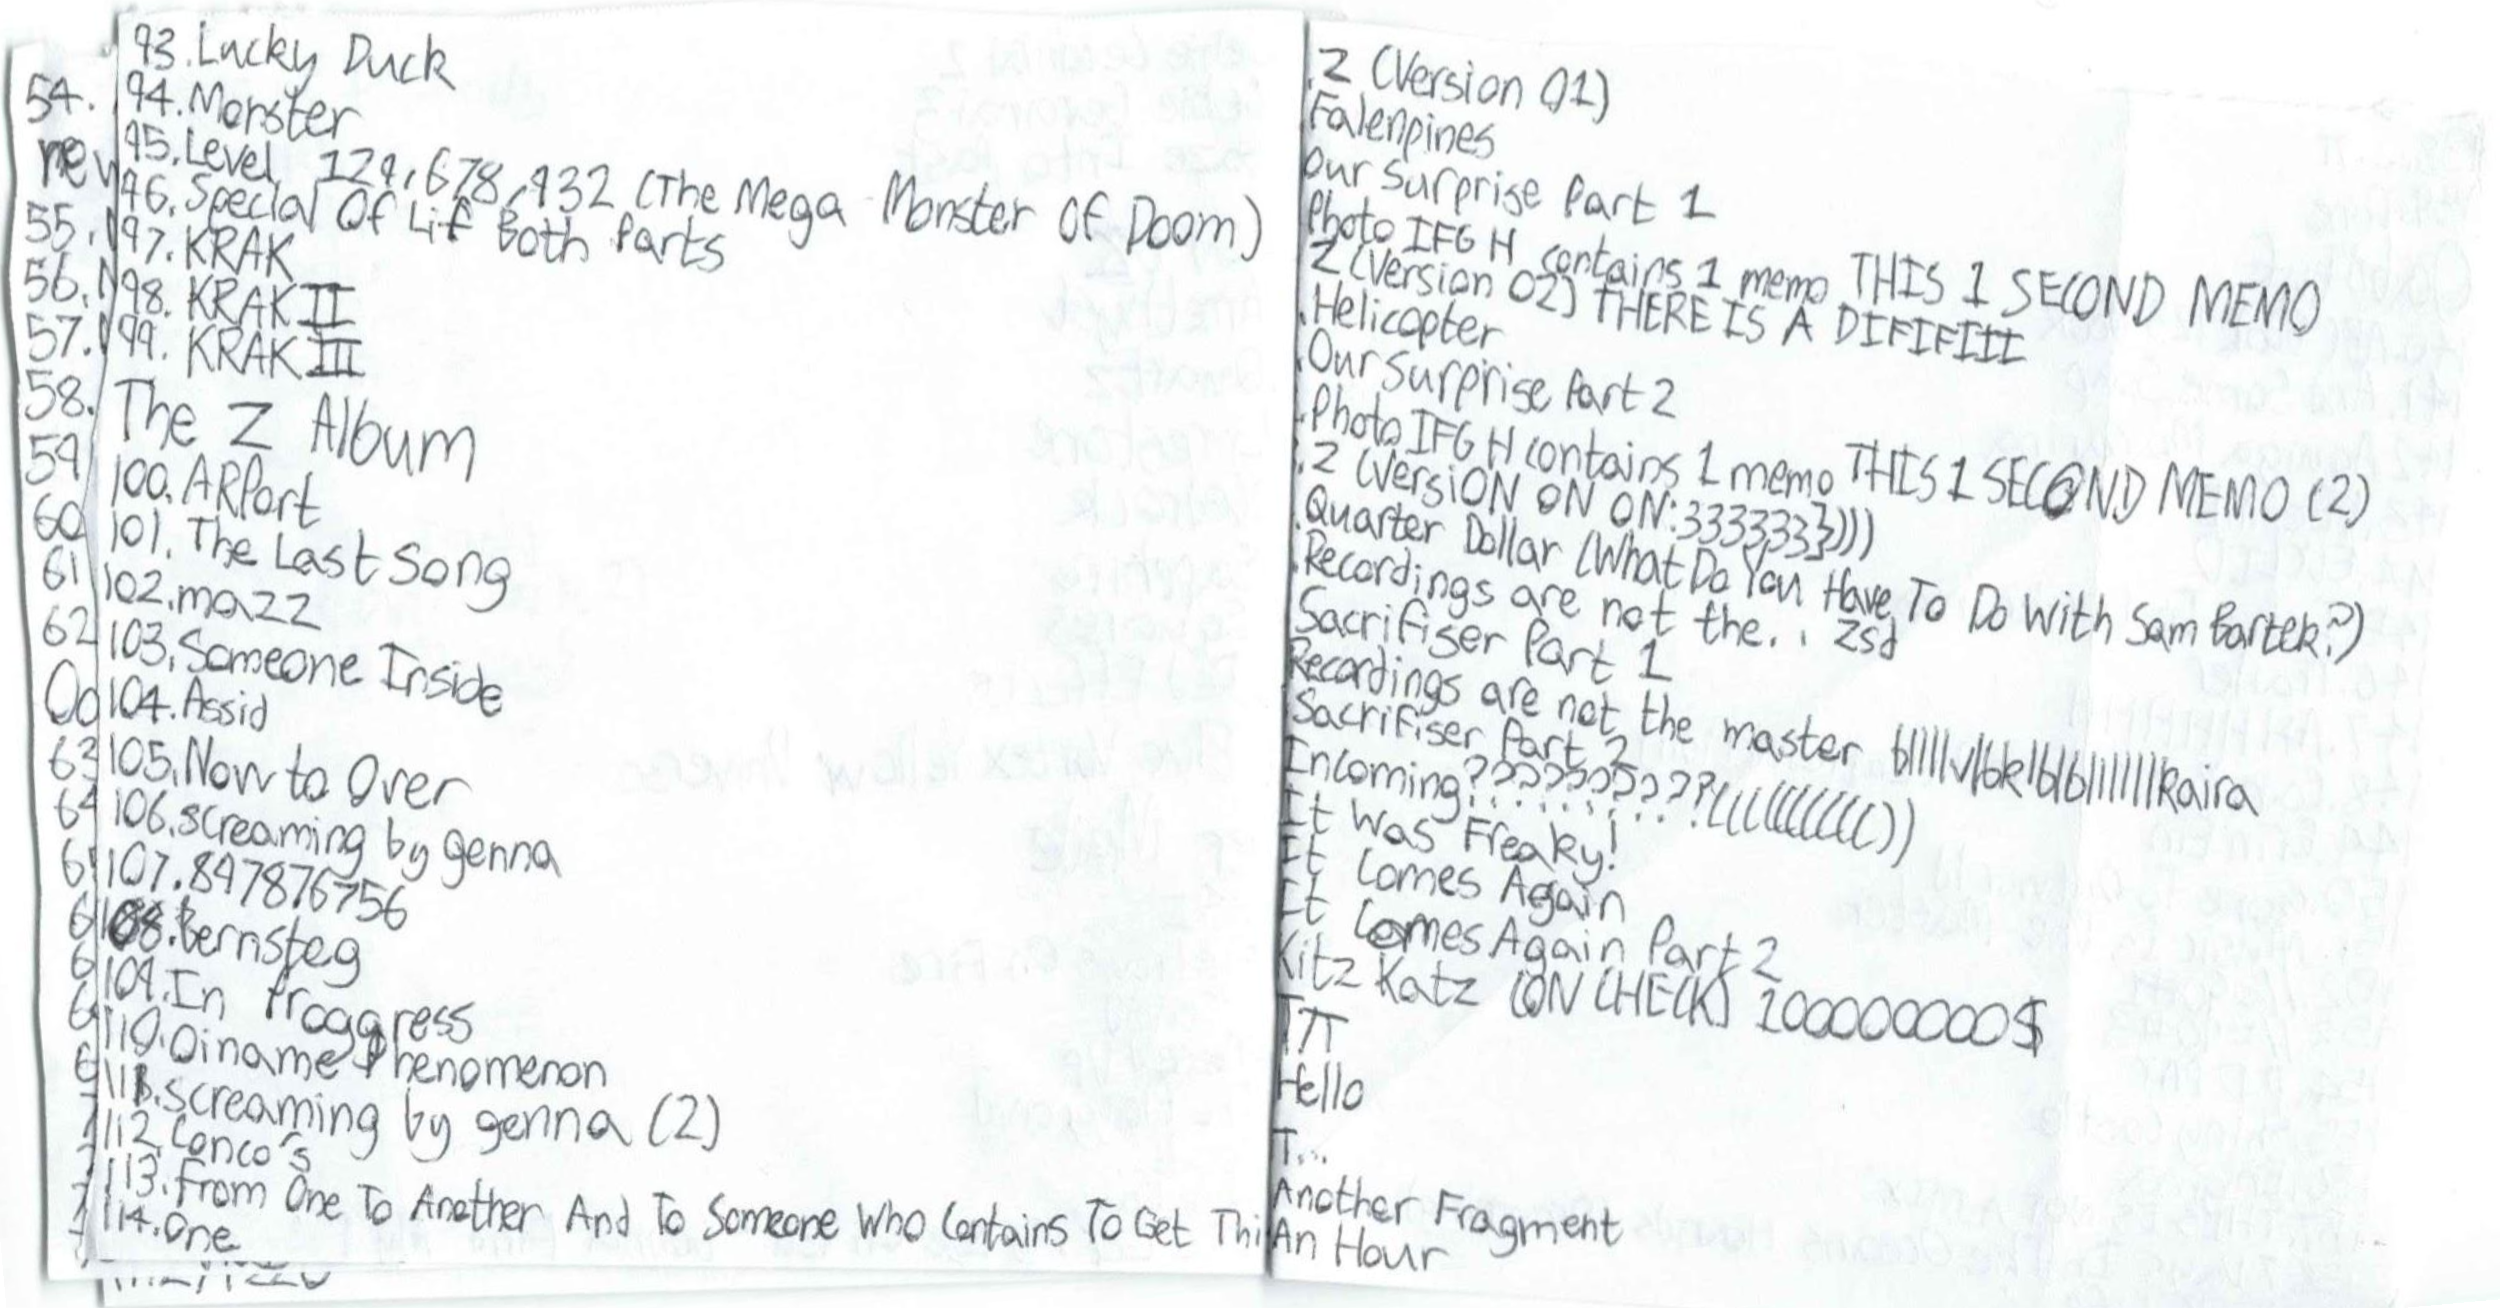 93.Lucky Duck
94.Monster
95.Level 129,678,932 (The Mega Monster Of Doom)
96.Special Of Lif Both Parts
97.KRAK
98.KRAK II
99.KRAK III
The Z Album
100.ARPort
101.The Last Song
102.mazz
103.Someone Inside
104.Assid
105.Now to Over
106.screaming by genna
107.897876756
108.Bernsteg
109.In Proggress
110.Oiname Phenomenon
111.screaming by genna (2)
112.Conco's
113.From One To Another And To Someone Who Contains To Get Thi
114.One
54.
new
55.
56.
57.
58.
59
60
61
62
63
64
.Z (Version 01)
Falenpines
Our Surprise Part 1
Photo IFG H contains 1 memo THIS 1 SECOND MEMO
Z (Version 02) THERE IS A DIFIFIFIII
.Helicopter
.Our Surprise Part 2
.Photo IFG H contains 1 memo THIS 1 SECOND MEMO (2)
.Z (VersiON ON ON:3333333)))
.Quarter Dollar (What Do You Have To Do With Sam Bartek?)
.Recordings are not the.. zsd
Sacrifiser Part 1
Recordings are not the master
Sacrifiser Part 2
Incoming??????????(((((((((())
It Was Freaky!
It Comes Again
It Comes Again Part 2
Kitz Katz (ON CHECK) 1000000000$
Hello
T...
Another Fragment
An Hour